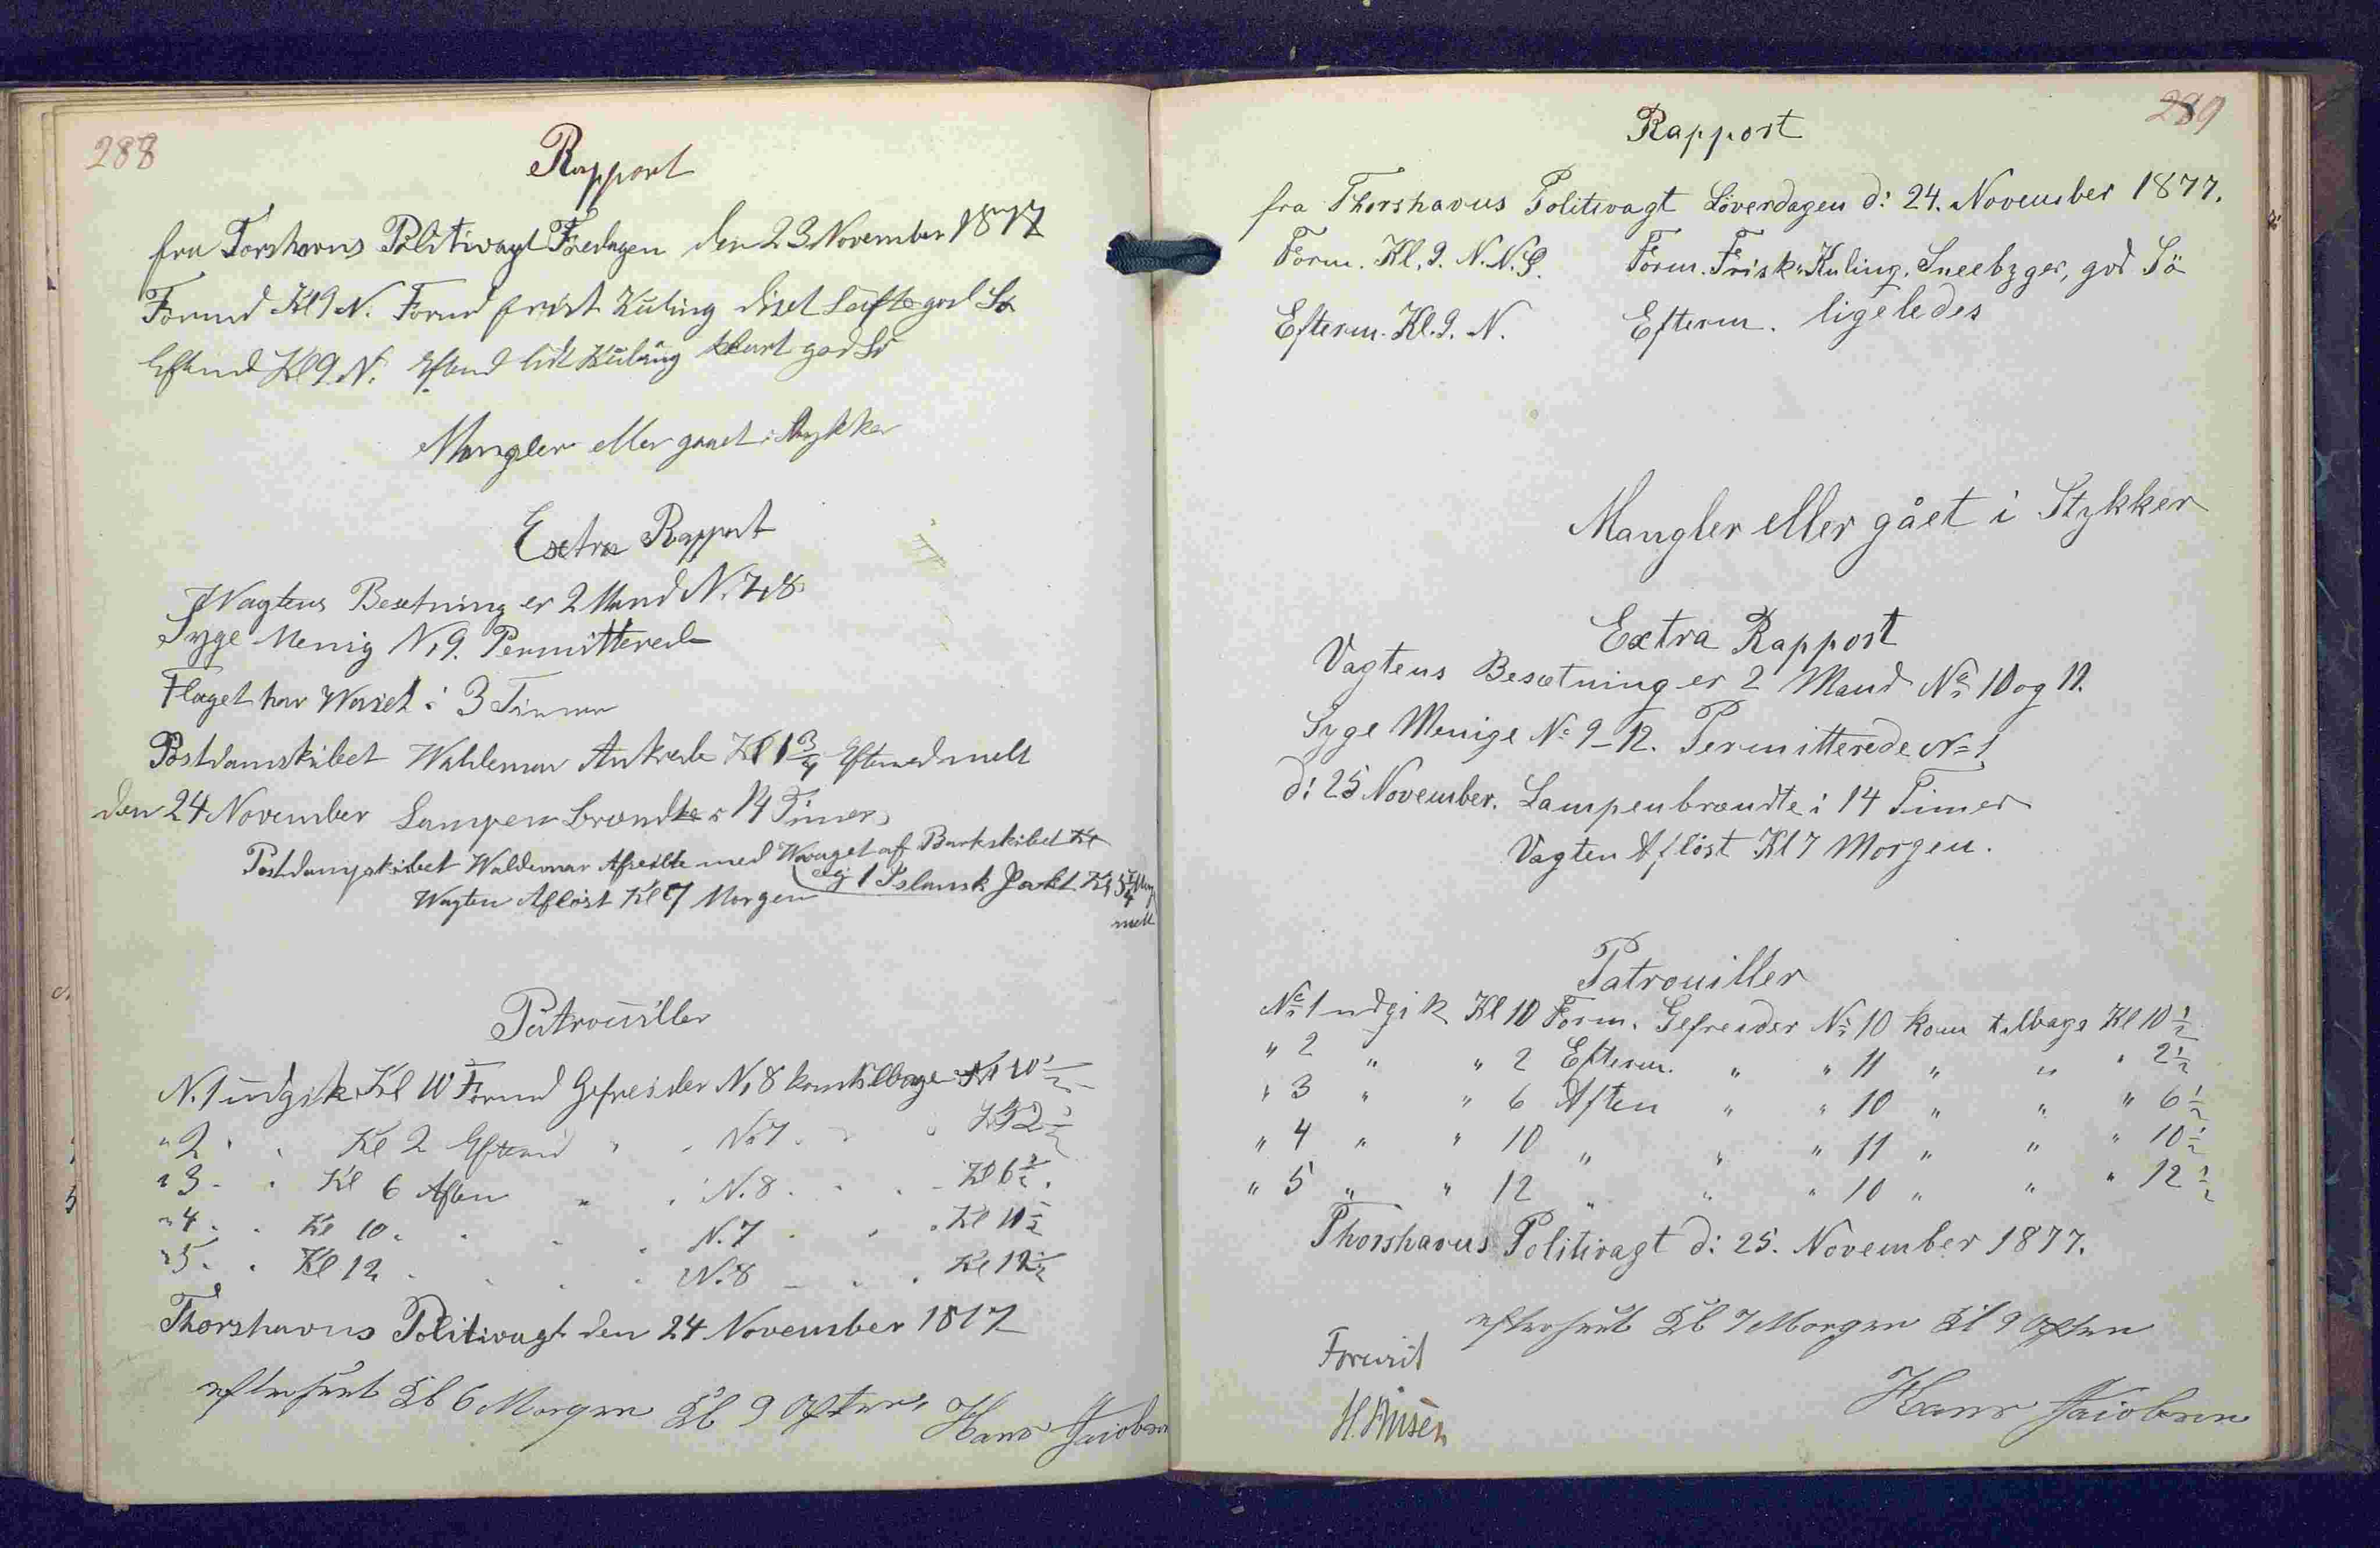 288
Rapport
fra Torshavns Politivagt Fredagen den 23 November 1877
Formd Kl 9 N. Formd frisk Kuling diset Luft god Sö
Eftmd Kl 9 N. Eftmd lidt Kuling klart god Sö
Mangler eller gaaet i Stykker
Extra Rapport
Wagtens Besetning er 2 Mand N. 7, 8
Syge Menig N, 9. Permitterede
Flaget har Waiet i 3 Timer
Postdamskibet Waldemar Ankrede Kl 1 3/4 Eftmd melt
den 24 November Lampen brændte i 14 Timer
Postdampskibet Waldemar Afreiste med af Barkskibet Kl
og 1 Islansk Jakt Kl 5 1/4
melt
Wagten Aflöst Kl 7 Morgen
Patrouiller
N. 1 udgik Kl 10 Formd Gefreider N, 8 kom tilbage Kl 10 1/2
" 2 " " Kl 2 Eftmd " " N. 7 " " " Kl 2 1/2
" 3 " " Kl 6 Aften " " N. 8 " " " Kl 6 1/2
" 4 " " Kl 10 " " " " N. 7 " " " Kl 10 1/2
" 5 " " Kl 12 " " " " N. 8 " " " Kl 12 1/2
Thorshavns Politivagt den 24 November 1877
efterseet Kl 6 Morgen Kl 9 Aften, Hans Jacobsen
289
Rapport
fra Thorshavns Politivagt Löverdagen d: 24. November 1877.
Form. Kl. 9. N.N.Ø. Form. Frisk Kuling. Sneebyger, god Sö
Efterm. Kl. 9. N. Efterm. ligeledes
Mangler eller gået i Stykker
Extra Rapport
Vagtens Besætning er 2 Mand No. 10 og 11.
Syge Menige No. 9-12. Permitterede No 1
d: 25 November. Lampen brændte i 14 Timer
Vagten Aflöst Kl 7 Morgen.
Patrouiller
No. 1 udgik Kl 10 Form. Gefreider No. 10 kom tilbage Kl 10 1/2
" 2 " " 2 Efterm. " " 11 " " " 2 1/2
" 3 " " 6 Aften " " 10 " " " 6 1/2
" 4 " " 10 " " " 11 " " " 10 1/2
" 5 " " 12 " " " 10 " " " 12 1/2
Thorshavns Politivagt d: 25. November 1877.
efterseet Kl 7 Morgen Kl 9 Aften
Forevist
Hans Jacobsen